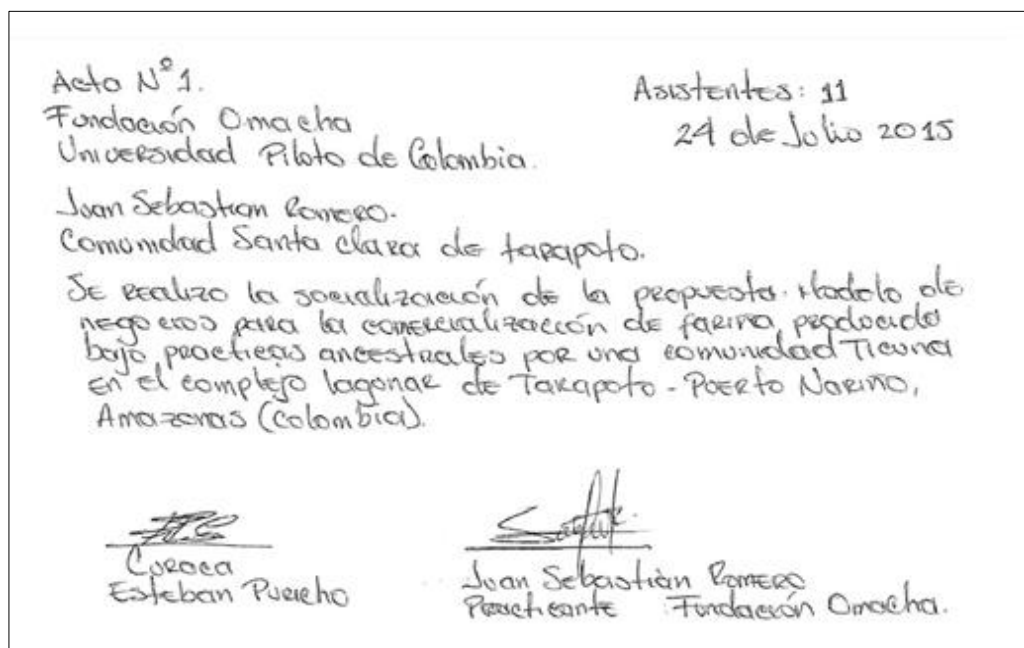 Acta N°1.
Asistentes: 11
Fundación Omacha
24 de Julio 2015
Universidad Piloto de Colombia.
Juan Sebastian Romero.
Comunidad Santa clara de tarapoto.
Se realizo la socialización de la propuesta. Modelo de
negocios para la comercialización de fariña, producida
bajo practicas ancestrales por una comunidad Ticuna
en el complejo lagunar de Tarapoto - Puerto Nariño,
Amazonas (Colombia).
Curaca
Esteban
Juan Sebastián Romero
Practicante Fundación Omacha.